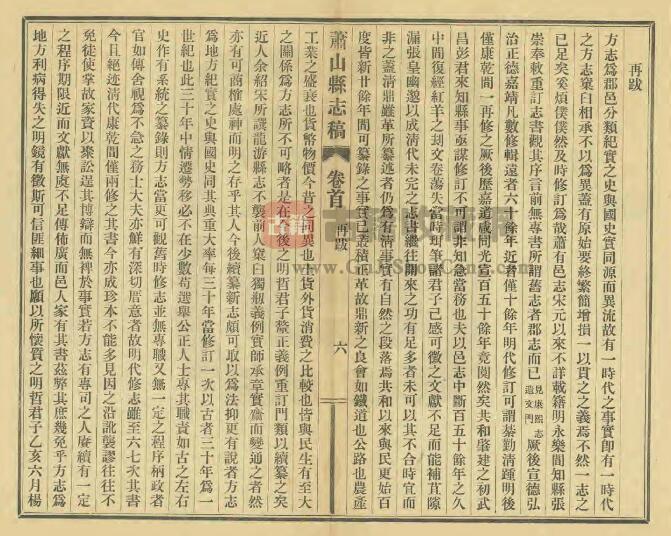 再跋
方志爲郡邑分類紀實之史與國史實同源而異流故有一時代之事實卽有一時代
之方志窠臼相承不以爲異蓋有原始要終繁簡增損一以貫之之義焉不然一志之
已足矣奚煩僕僕然及時修訂爲哉蕭有邑志宋元以來不詳載籍明永樂間知縣張
崇奉敕重訂志書觀其序言前無專書所謂舊志者郡志而已見康熙志遺文門厥後宣德弘
治正德嘉靖凡數修輯遠者六十餘年近者僅十餘年明代修訂可謂綦勤清踵明後
僅康乾間一再修之厥後歷嘉道咸同光宣百五十餘年竟闃然矣共和肇建之初武
昌彭君來知縣事亟謀修訂不可謂非知急當務也夫以邑志中斷百五十餘年之久
中間復經紅羊之刦文卷蕩失當時珥筆諸君子已感可徵之文獻不足而能補苴隙
漏張皇幽邈以成清代未完之志書繼往開來之功有足多者未可以其不合時宜而
非之蓋清鼎雖革所纂述者仍爲有清事實有自然之段落焉共和以來與民更始百
度皆新廿餘年間可纂錄之事實已叢積正革故鼎新之良會如鐵道也公路也農產
蕭山縣志稿 卷首 再跋 六
工業之盛衰也貨幣物價今昔之同異也外貨消費之比較也皆與民生有至大
之關係爲方志所不可略者是在今後之明哲君子釐正義例重訂門類以續纂之矣
近人余紹宋所譔龍游縣志不襲前人窠臼獨瓶義例實師承章實齋而變通之者然
亦有可商榷處神而明之存乎其人今後續纂新志頗可取以爲法抑更有說者方志
爲地方紀實之史與國史同其典重大率每三十年當修訂一次以古者三十年爲一
世紀也此三十年中情遷勢移必不在少數苟選舉公正人士專其職責如古之左右
史作有系統之纂錄則方志當更可觀舊時修志並無專職又無一定之程序柄政者
官如傳舍視爲不急之務士大夫亦鮮有深切厝意者故明代修志雖至六七次其書
今且絕迹清代康乾間僅兩修之其書今亦成珍本不能多見因之沿訛襲謬往往不
免徒使掌故家資以聚訟逞其博辯而無裨於事實若方志有專司之人庚續有一定
之程序期限近而文獻無虞不足傳佈廣而邑人家有其書茲弊其庶幾免乎方志爲
地方利病得失之明鏡有徵斯可信匪細事也願以所懷質之明哲君子乙亥六月楊
古籍收藏网
www.GuJiShouCang.com